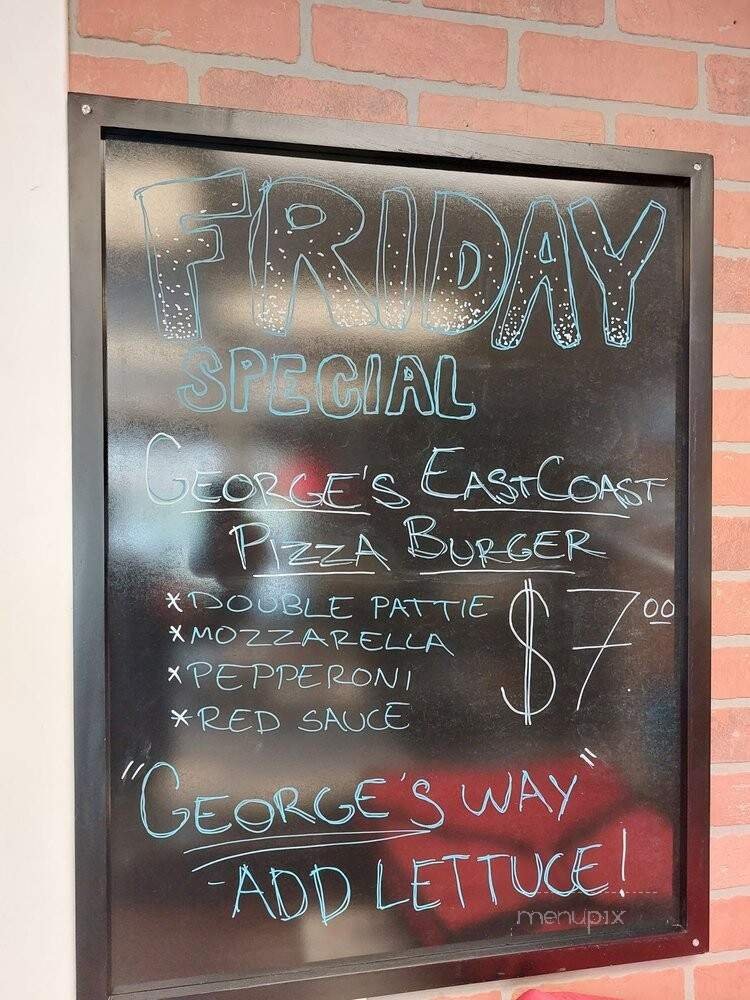 FRIDAY
SPECIAL
GEORGE'S EASTCOAST
PIZZA BURGER
*DOUBLE PATTIE
*MOZZARELLA
*PEPPERONI
*RED SAUCE
$7.00
"GEORGE'S WAY"
-ADD LETTUCE!
menupix